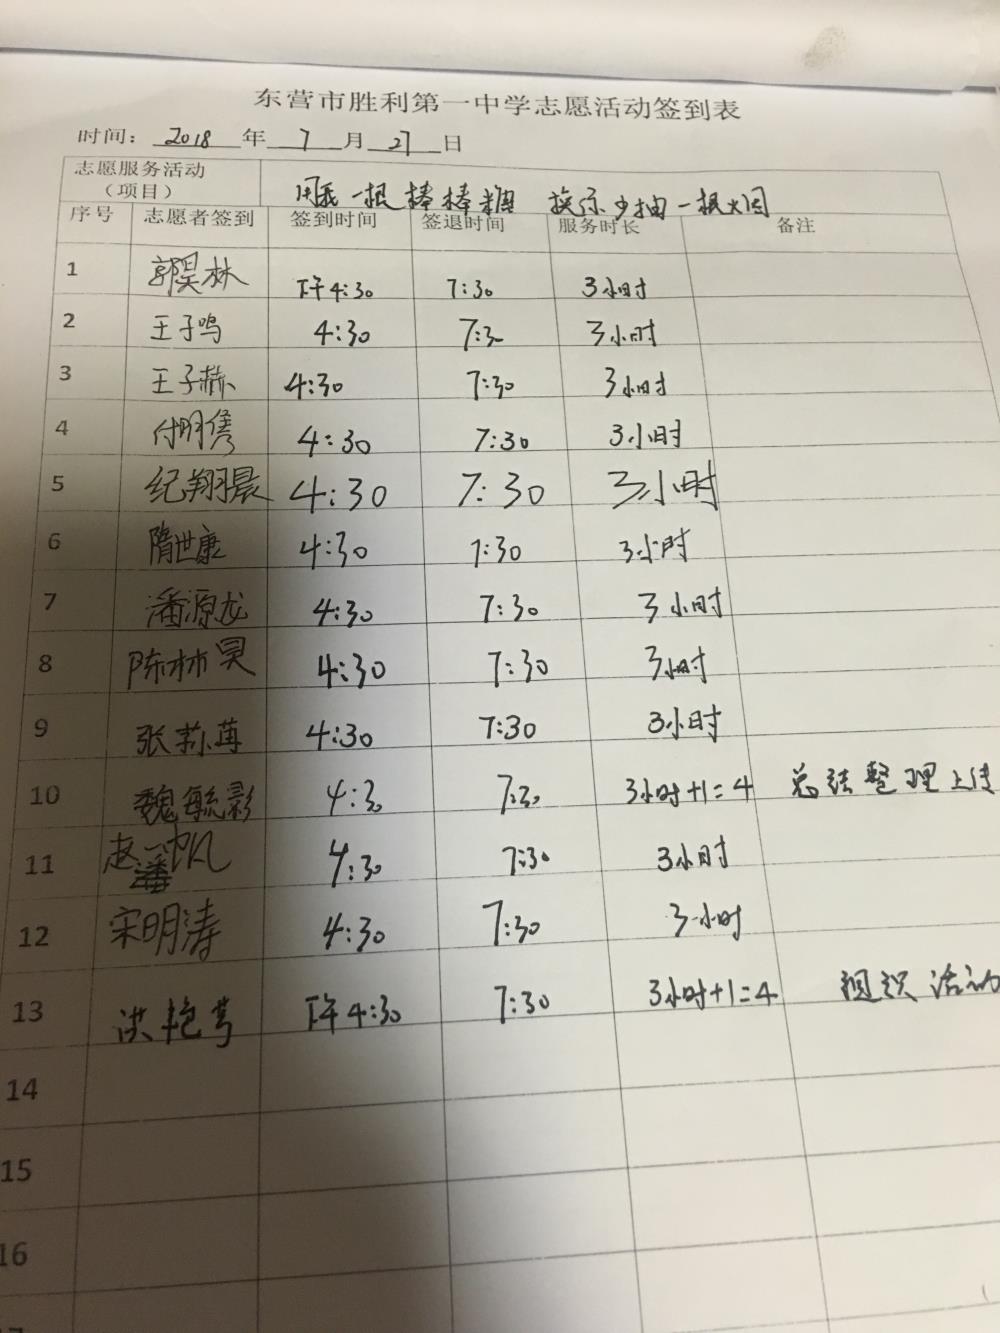 东营市胜利第一中学志愿活动签到表
时间： 2018 年 7 月 27 日
志愿服务活动（项目） 用我一根棒棒糖 换你少抽一根火因
序号 志愿者签到 签到时间 签退时间 服务时长 备注
1 郭昊林 下午4:30 7:30 3小时
2 王子鸣 4:30 7:3 3小时
3 王子赫 4:30 7:30 3小时
4 付明隽 4:30 7:30 3小时
5 纪翔晨 4:30 7:30 3小时
6 隋世康 4:30 7:30 3小时
7 潘源龙 4:30 7:30 3小时
8 陈林昊 4:30 7:30 3小时
9 张 4:30 7:30 3小时
10 魏毓影 4:30 7:30 3小时+1=4 总结整理上传
11 赵一帆 4:30 7:30 3小时
12 宋明涛 4:30 7:30 3小时
13 洪艳 下午4:30 7:30 3小时+1=4 组织活动
14
15
16